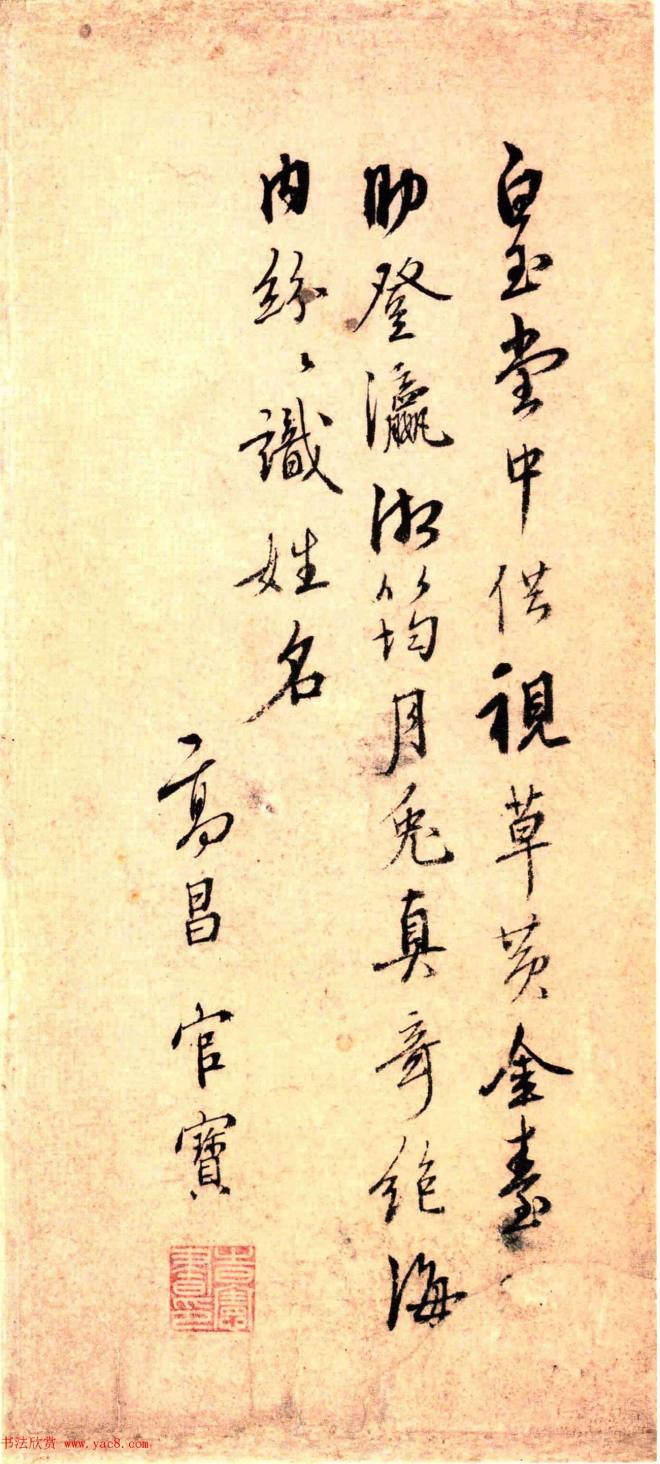 白玉堂中供視草黄金臺
助登瀛湘筠月兔真奇絶海
内紛〻識姓名
高昌官寶
书法欣赏 www.yac8.com